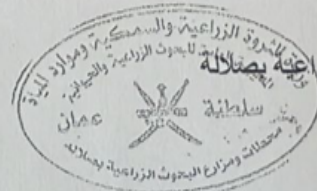 وزارة الثروة الزراعية والسمكية وموارد المياه
للبحوث الزراعية والحيوانية
اعية بصلالة
سلطنة عمان
محطات ومزارع البحوث الزراعية بصلالة